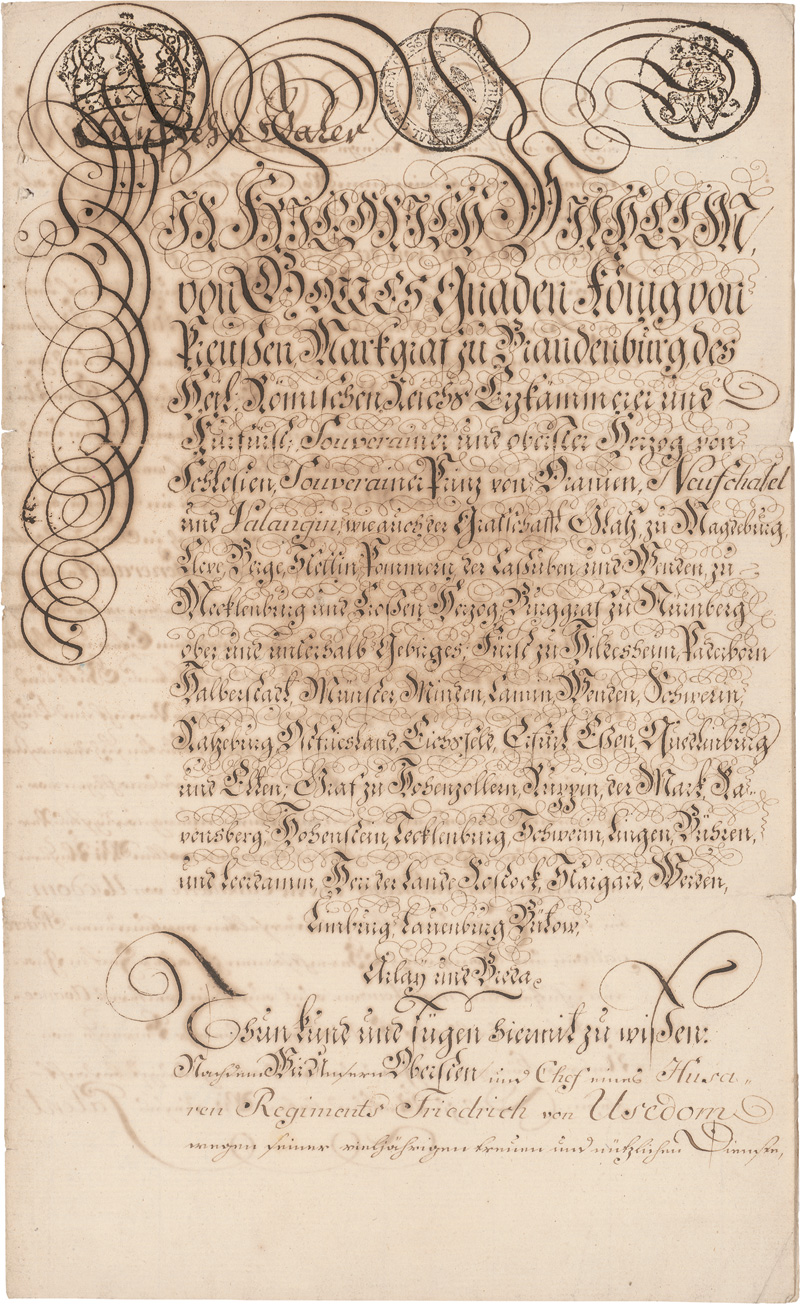 Funfzehn Thaler
WIR FRIEDRICH WILHELM,
von GOTTES Gnaden König von
Preußen, Markgraf zu Brandenburg des
Heil. Römischen Reichs Erzkämmerer und
Kurfürst, Souverainer und oberster Herzog von
Schlesien, Souverainer Prinz von Oranien, Neufchatel
und Valangin, wie auch der Grafschaft Glatz, zu Magdeburg,
Cleve, Berge, Stettin, Pommern, der Cassuben und Wenden, zu
Mecklenburg und Crossen Herzog, Burggraf zu Nürnberg
ober und unterhalb Gebürges, Fürst zu Hildesheim, Paderborn
Halberstadt, Münster, Minden, Camin, Wenden, Schwerin,
Ratzeburg, Ostfriesland, Eichsfeld, Erfurt, Essen, Quedlinburg
und Elten, Graf zu Hohenzollern, Ruppin, der Mark, Ra-
vensberg, Hohenstein, Tecklenburg, Schwerin, Lingen, Bühren,
und Leerdamm, Herr der Lande Rostock, Stargard, Werden,
Limburg, Lauenburg, Bütow,
Arlay und Breda.
Thun kund und fügen hiermit zu wissen:
Nachdem Wir Unsern Obersten und Chef eines Husa-
ren Regiments Friedrich von Usedom
wegen seiner vieljährigen treuen und nützlichen Dienste,